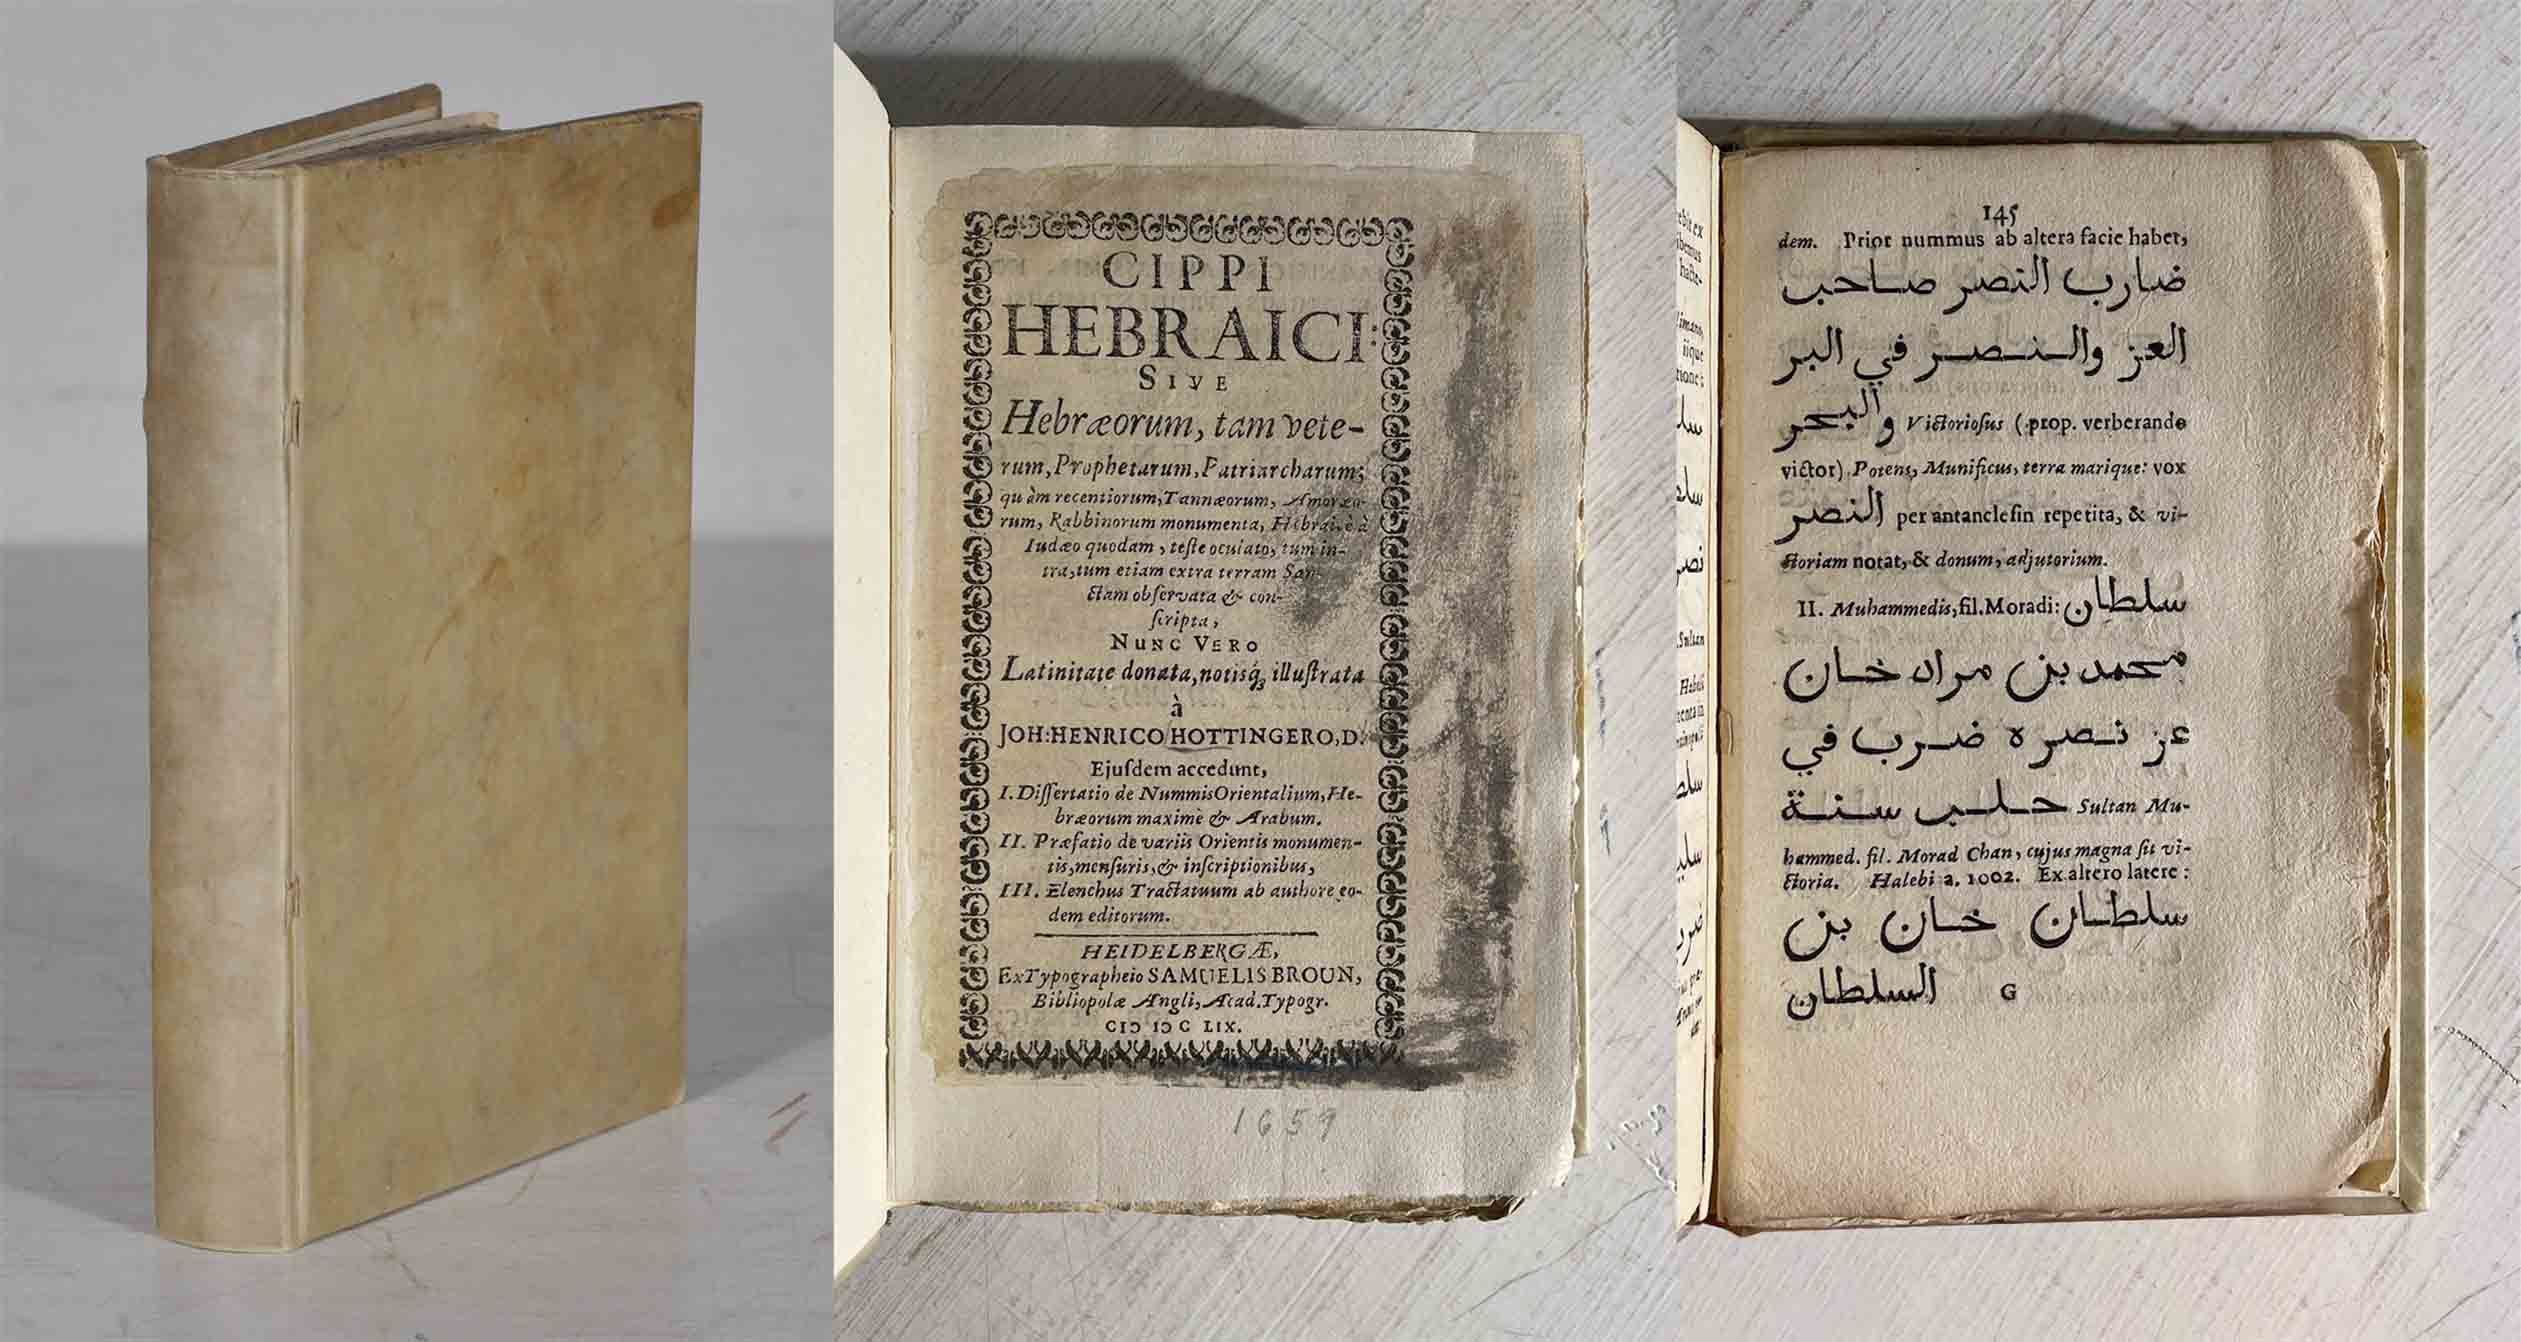 CIPPI
HEBRAICI:
SIVE
Hebræorum, tam vete-
rum, Prophetarum, Patriarcharum;
quàm recentiorum, Tannæorum, Amoræo-
rum, Rabbinorum monumenta, Hebraicè à
Iudæo quodam, teste oculato, tum in-
tra, tum etiam extra terram San-
ctam observata & con-
scripta,
NUNC VERO
Latinitate donata, notisq́; illustrata
à
JOH: HENRICO HOTTINGERO, D.
Ejusdem accedunt,
I. Dissertatio de Nummis Orientalium, He-
bræorum maximè & Arabum.
II. Præfatio de variis Orientis monumen-
tis, mensuris, & inscriptionibus,
III. Elenchus Tractatuum ab authore eo-
dem editorum.
HEIDELBERGÆ,
Ex Typographeio SAMUELIS BROUN,
Bibliopolæ Angli, Acad. Typogr.
CIↃ IↃC LIX.
1659
145
dem. Prior nummus ab altera facie habet,
ضارب النصر صاحب
العز والنصر في البر
والبحر Victoriosus (prop. verberando
victor) Potens, Munificus, terra marique: vox
النصر per antanclesin repetita, & vi-
ctoriam notat, & donum, adjutorium.
II. Muhammedis, fil. Moradi: سلطان
محمد بن مراد خان
عز نصره ضرب في
حلب سنة Sultan Mu-
hammed. fil. Morad Chan, cujus magna sit vi-
ctoria. Halebi a. 1002. Ex altero latere:
سلطان خان بن
السلطان G